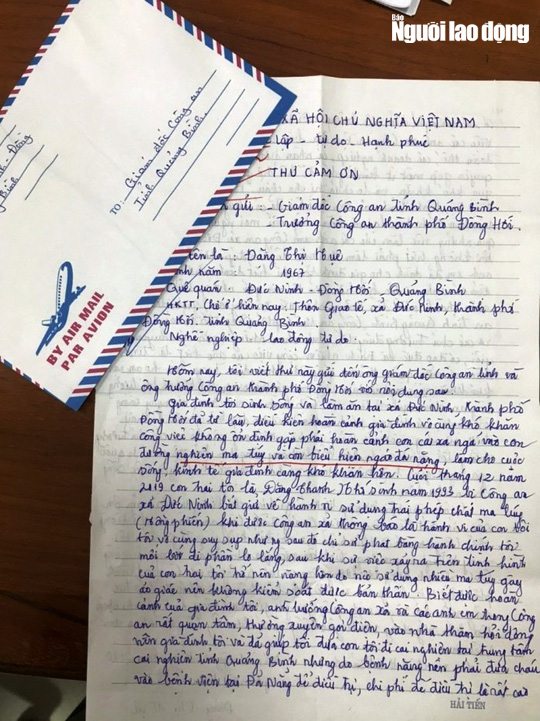 Báo
Người lao động
XÃ HỘI CHỦ NGHĨA VIỆT NAM
lập - tự do - Hạnh phúc
THƯ CẢM ƠN
gửi: - Giám đốc Công an tỉnh Quảng Bình
- Trưởng Công an thành phố Đồng Hới.
TO: Giám đốc Công an
Tỉnh Quảng Bình
BY AIR MAIL
PAR AVION
tên là: Đặng Thị Huê
năm 1967
Quê quán: Đức Ninh - Đồng Hới - Quảng Bình
HKTT, Chỗ ở hiện nay: Thôn Giao tế, xã Đức Ninh, thành phố
Đồng Hới, tỉnh Quảng Bình
Nghề nghiệp: lao động tự do.
Hôm nay, tôi viết thư này gửi đến ông giám đốc Công an tỉnh và
ông trưởng Công an thành phố Đồng Hới với nội dung sau
Gia đình tôi sinh sống và làm ăn tại xã Đức Ninh, thành phố
Đồng Hới đã từ lâu, điều kiện hoàn cảnh gia đình vô cùng khó khăn
công việc không ổn định gặp phải hoàn cảnh con cái sa ngã vào con
đường nghiện ma túy và còn biểu hiện ngáo đá nặng, làm cho cuộc
sống, kinh tế gia đình càng khó khăn hơn. Cuối tháng 12 năm
2019 con trai tôi là, Đặng Thanh sinh năm 1993 bị Công an
xã Đức Ninh bắt giữ về hành vi sử dụng trái phép chất ma túy
khi được công an xã thông báo là hành vi của con trai
tôi tôi vô cùng suy sụp nhưng sau đó chỉ xử phạt bằng hành chính tôi
mới bớt đi phần lo lắng, sau khi sự việc xảy ra trên tình hình
của con trai tôi trở nên nặng hơn do nó sử dụng nhiều ma túy gây
ảo giác nên không kiểm soát được bản thân. Biết được hoàn
cảnh của gia đình tôi, anh trưởng Công an xã và các anh em trong Công
an rất quan tâm, thường xuyên gọi điện, vào nhà thăm hỏi động
viên gia đình tôi và đã giúp tôi đưa con tôi đi cai nghiện tại trung tâm
cai nghiện tỉnh Quảng Bình nhưng do bệnh nặng nên phải đưa cháu
vào bệnh viện tại Đà Nẵng để điều trị, chi phí để điều trị là rất cao
HẢI TIẾN